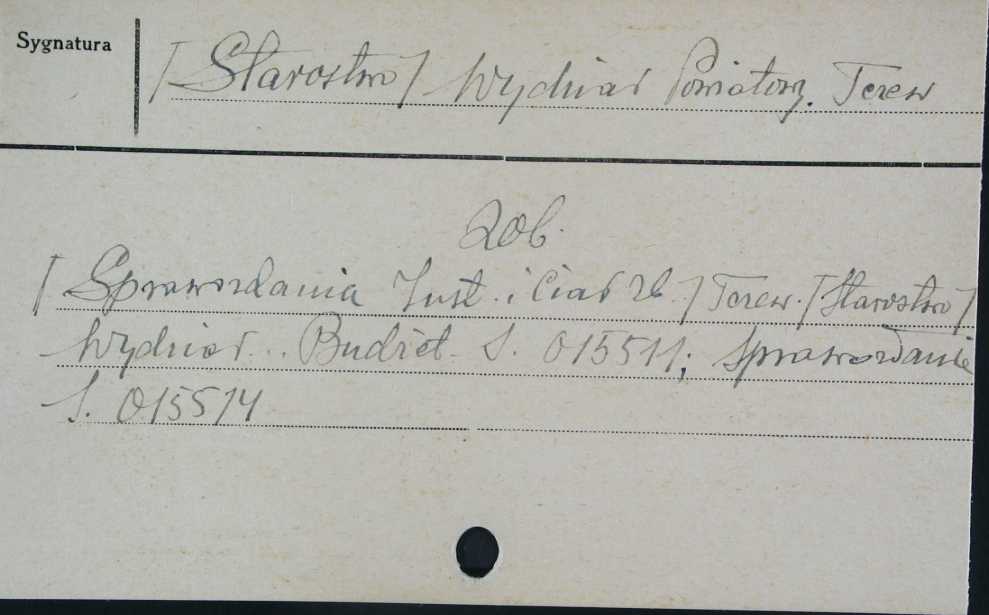 Sygnatura
[Starostwo] Wydział Powiatowy. Tczew
Zob.
[Sprawozdania Inst. i Ciał zb.] Tczew. [Starostwo]
Wydział... Budżet. S. 015511; Sprawozdanie
S. 015514